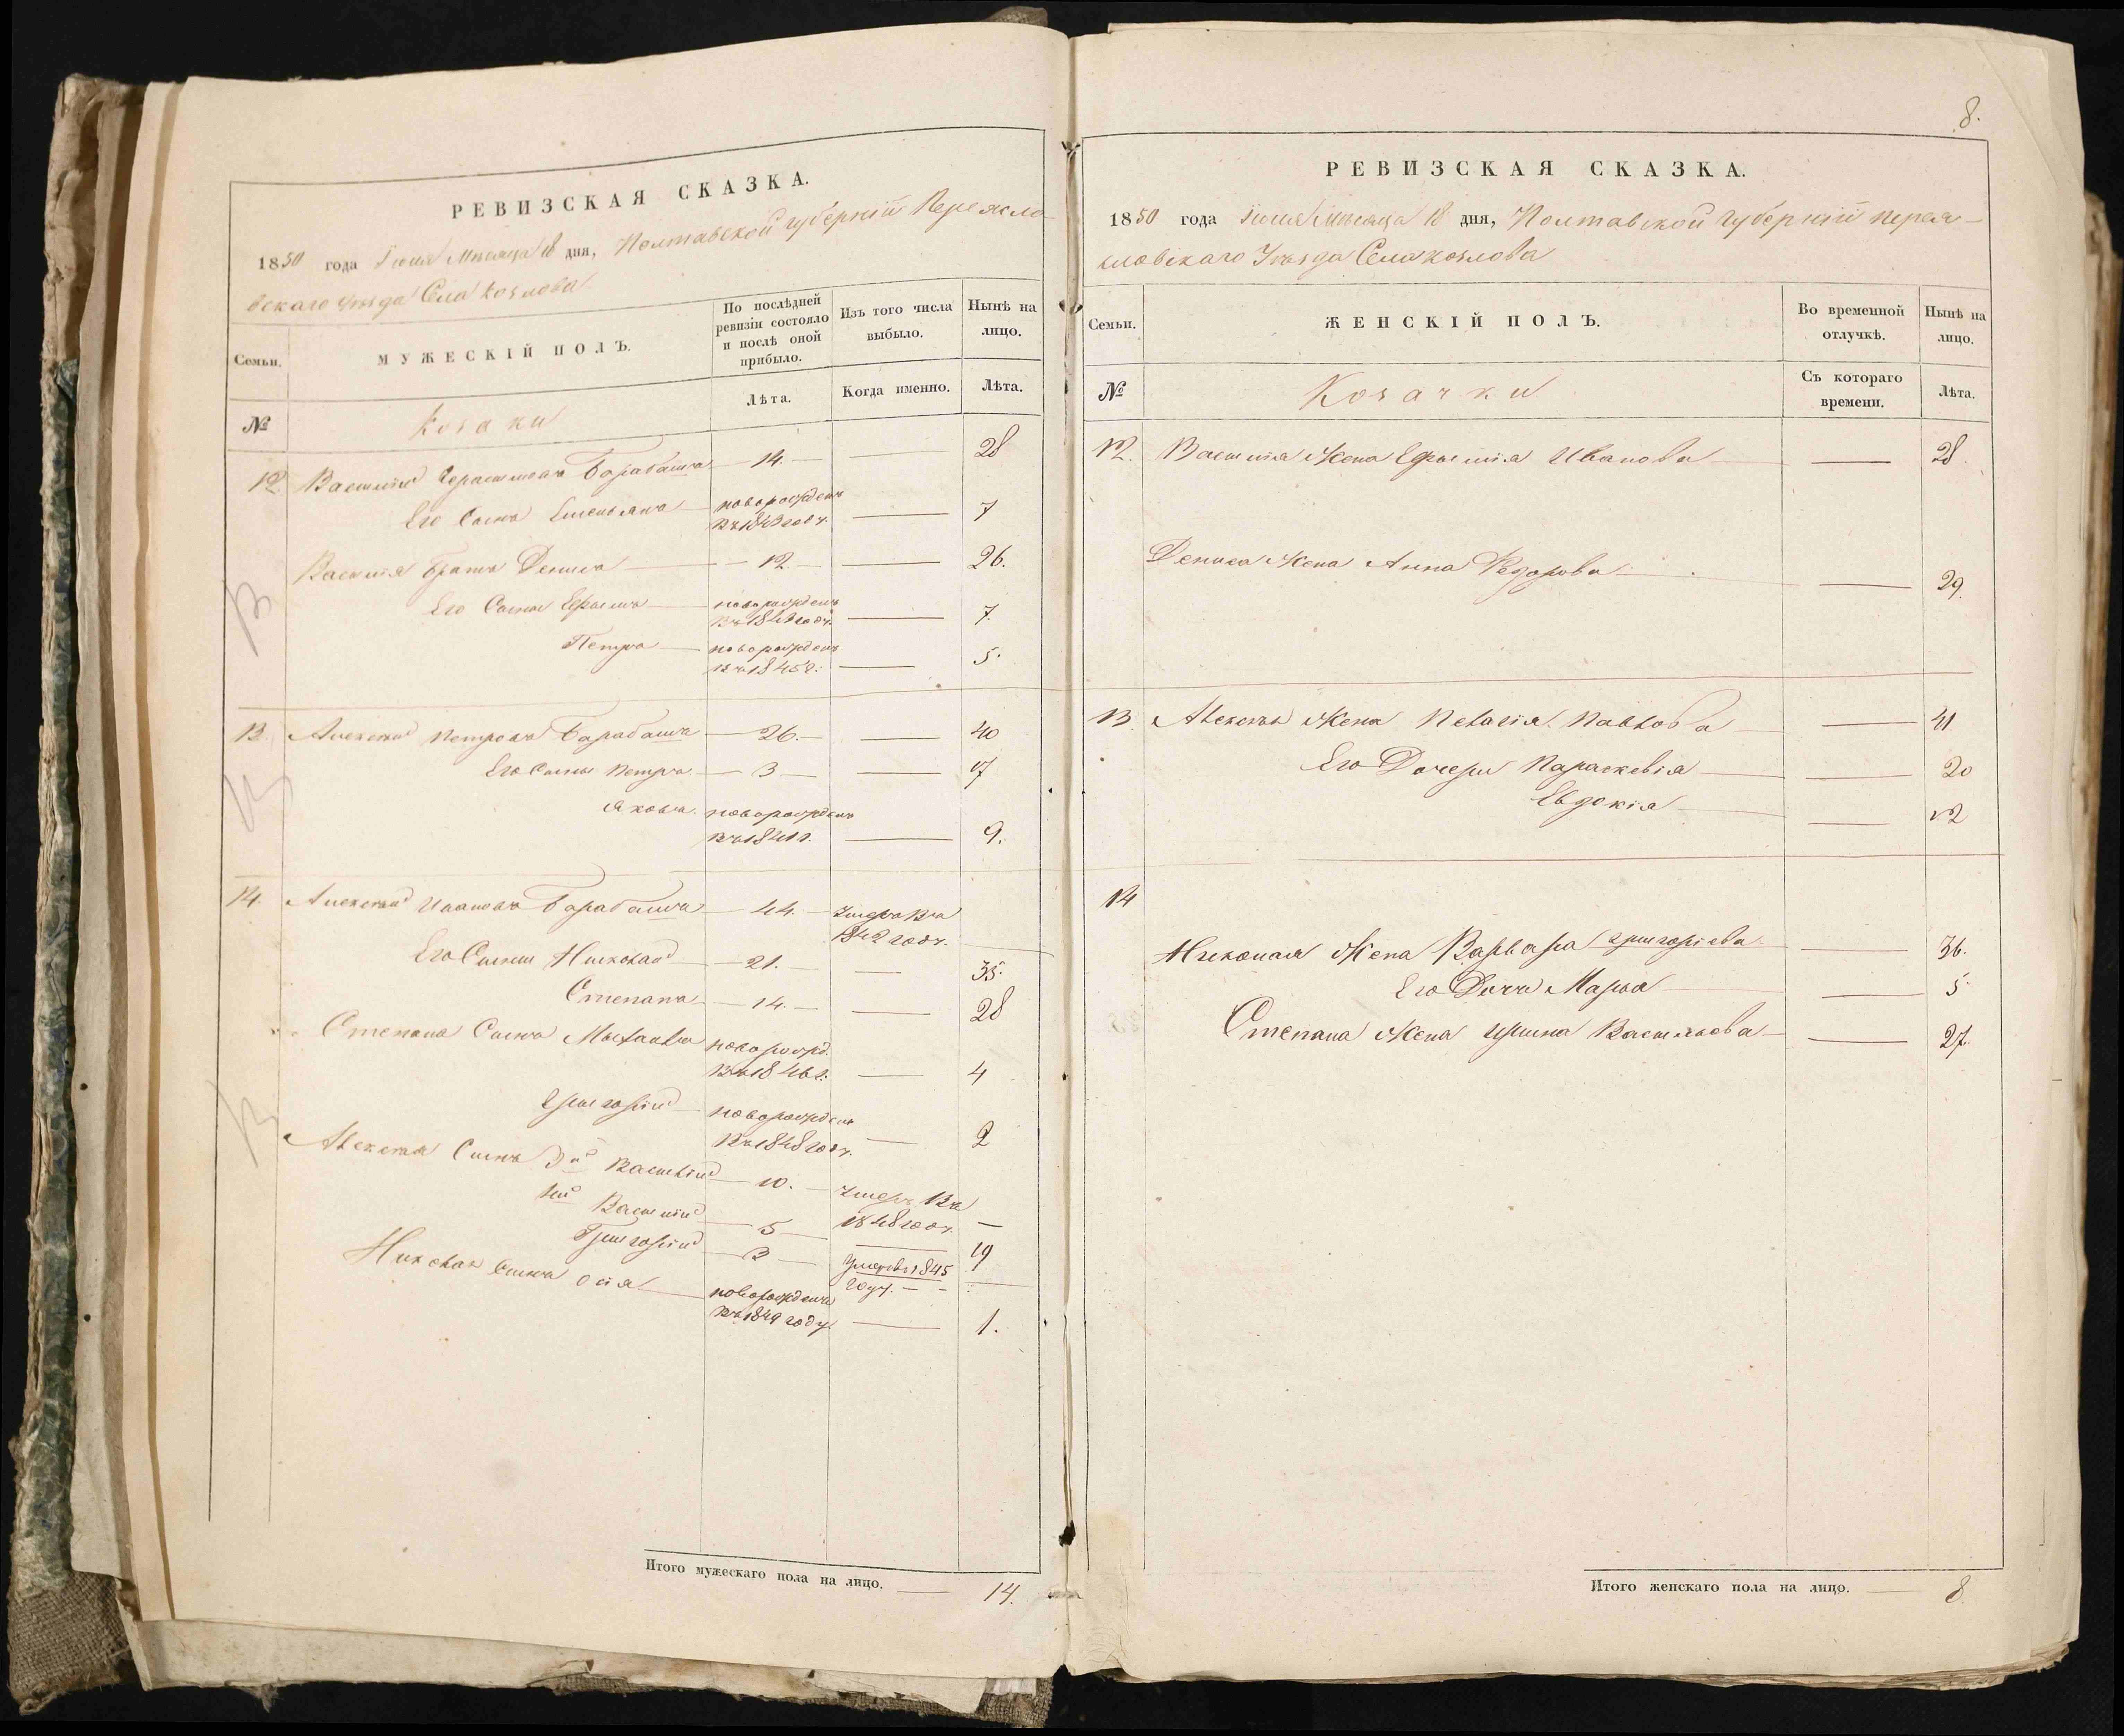 РЕВИЗСКАЯ СКАЗКА.
1850 года Іюня Мѣсяца 18 дня, Полтавской губерніи Переясло-
вскаго уѣзда Села Козлова
Семьи. МУЖЕСКІЙ ПОЛЪ. По послѣдней ревизіи состояло и послѣ оной прибыло. Изъ того числа выбыло. Нынѣ на лицо.
№ Лѣта. Когда именно. Лѣта.
Козаки
12. Василій Герасимовъ Барабашъ — 14. — — 28
Его Сынъ Емельянъ новорожденъ въ 1843 году. — 7
Василія братъ Денисъ — 12. — — 26.
Его Сыны Ефимъ новорожденъ въ 1843 году. — 7.
Петръ новорожденъ въ 1845 г. — 5.
13 Алексѣй Петровъ Барабашъ — 26. — — 40
Его Сыны Петръ — 3 — — 17
Яковъ новорожденъ въ 1841 г. — 9.
14. Алексѣй Ивановъ Барабашъ — 44. — Умеръ въ 1842 году. —
Его Сыны Николай — 21. — — 35.
Степанъ — 14. — — 28
Степана Сынъ новорожд. въ 1846 г. — 4
Григорій новорожденъ въ 1848 году. — 2
Алексѣя Сынъ 3й Василій — 10. — Умеръ въ 1848 году. —
4й Василій — 5 — — 19
Григорій — 3 — Умеръ въ 1845 году. — —
Николая Сынъ новорожденъ въ 1849 году — 1.
Итого мужескаго пола на лицо. — 14.
8.
РЕВИЗСКАЯ СКАЗКА.
1850 года Іюня Мѣсяца 18 дня, Полтавской губерніи Перея-
словскаго Уѣзда Села Козлова
Семьи. ЖЕНСКІЙ ПОЛЪ. Во временной отлучкѣ. Нынѣ на лицо.
№ Съ котораго времени. Лѣта.
Козачки
12. Василія Жена Ефимія Иванова — 28.
Дениса Жена Анна Федорова — 29.
13 Алексѣя Жена Пелагія Павлова — 41
Его Дочери Параскевія — 20
Евдокія — 12
14
Николая Жена Варвара Григоріева — 36.
Его Дочь Марья — 5.
Степана Жена Ирина Васильева — 27.
Итого женскаго пола на лицо. — 8.